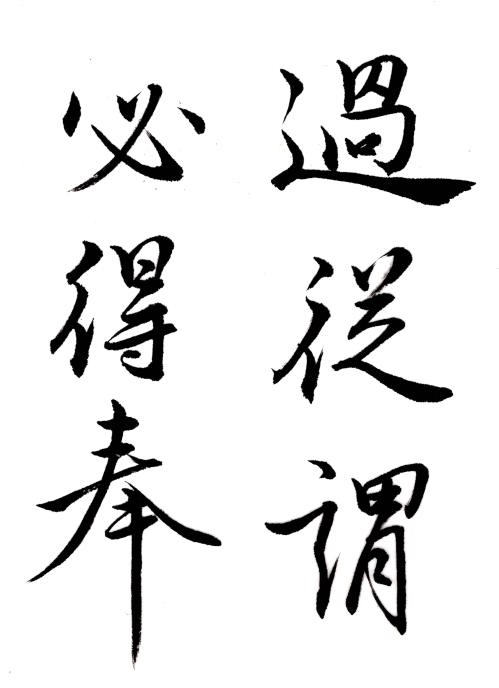 過従謂
必得奉